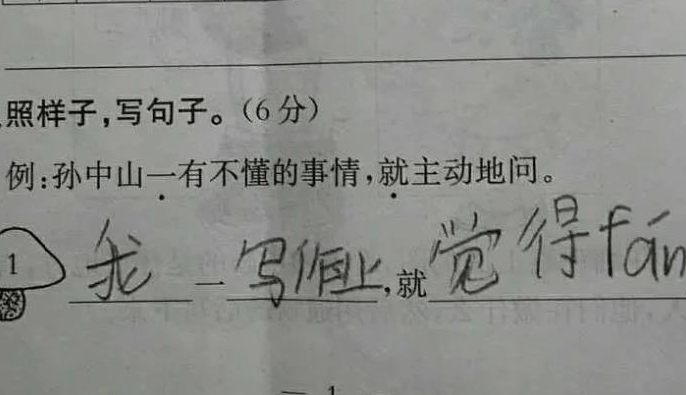 、照样子,写句子。(6分)
例:孙中山一有不懂的事情,就主动地问。
1 我一写作业,就觉得fán